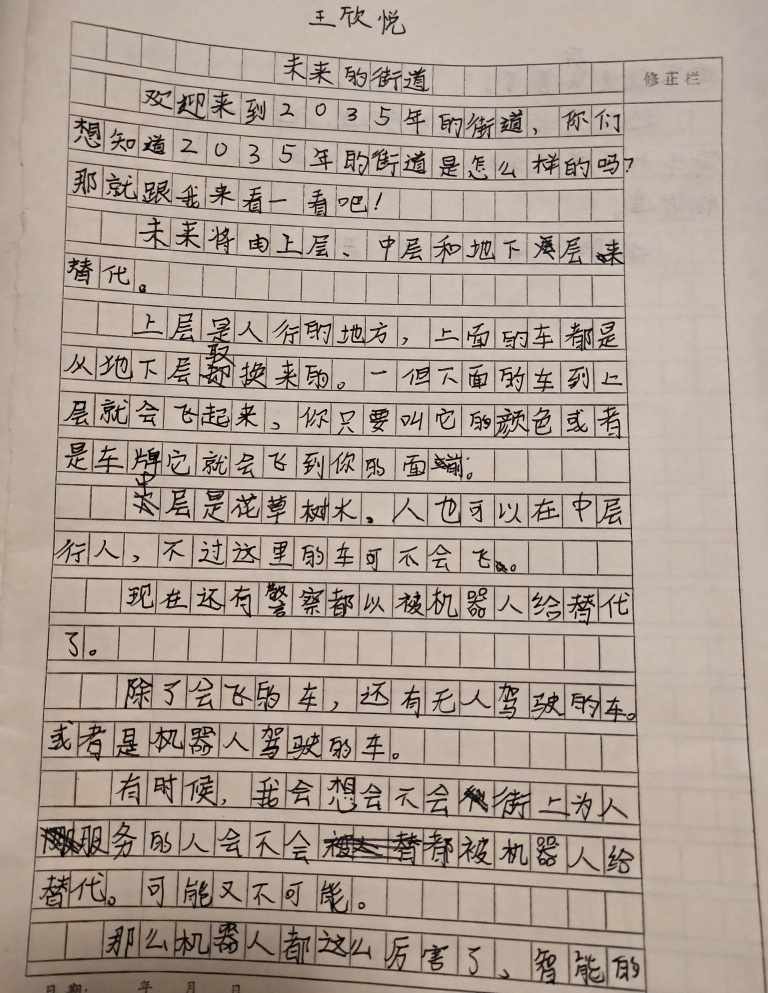 王欣悦
修正栏
未来的街道
欢迎来到2035年的街道，你们
想知道2035年的街道是怎么样的吗？
那就跟我来看一看吧！
未来将由上层、中层和地下层来
替代。
上层是人行的地方，上面的车都是
从地下层取换来的。一但下面的车到上
层就会飞起来、你只要叫它的颜色或者
是车牌它就会飞到你的面前。
中层是花草树木。人也可以在中层
行人，不过这里的车可不会飞。
现在还有警察都以被机器人给替代
了。
除了会飞的车，还有无人驾驶的车。
或者是机器人驾驶的车。
有时候，我会想会不会街上为人
服务的人会不会都被机器人给
替代。可能又不可能。
那么机器人都这么厉害了、智能的
日期： 年 月 日